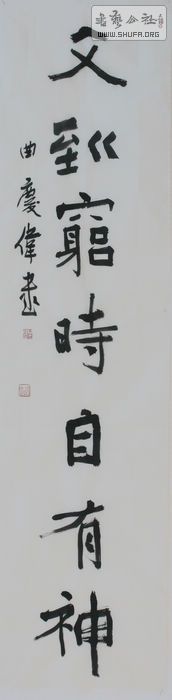 文到窮時自有神
曲慶偉書
書藝公社
WWW.SHUFA.ORG